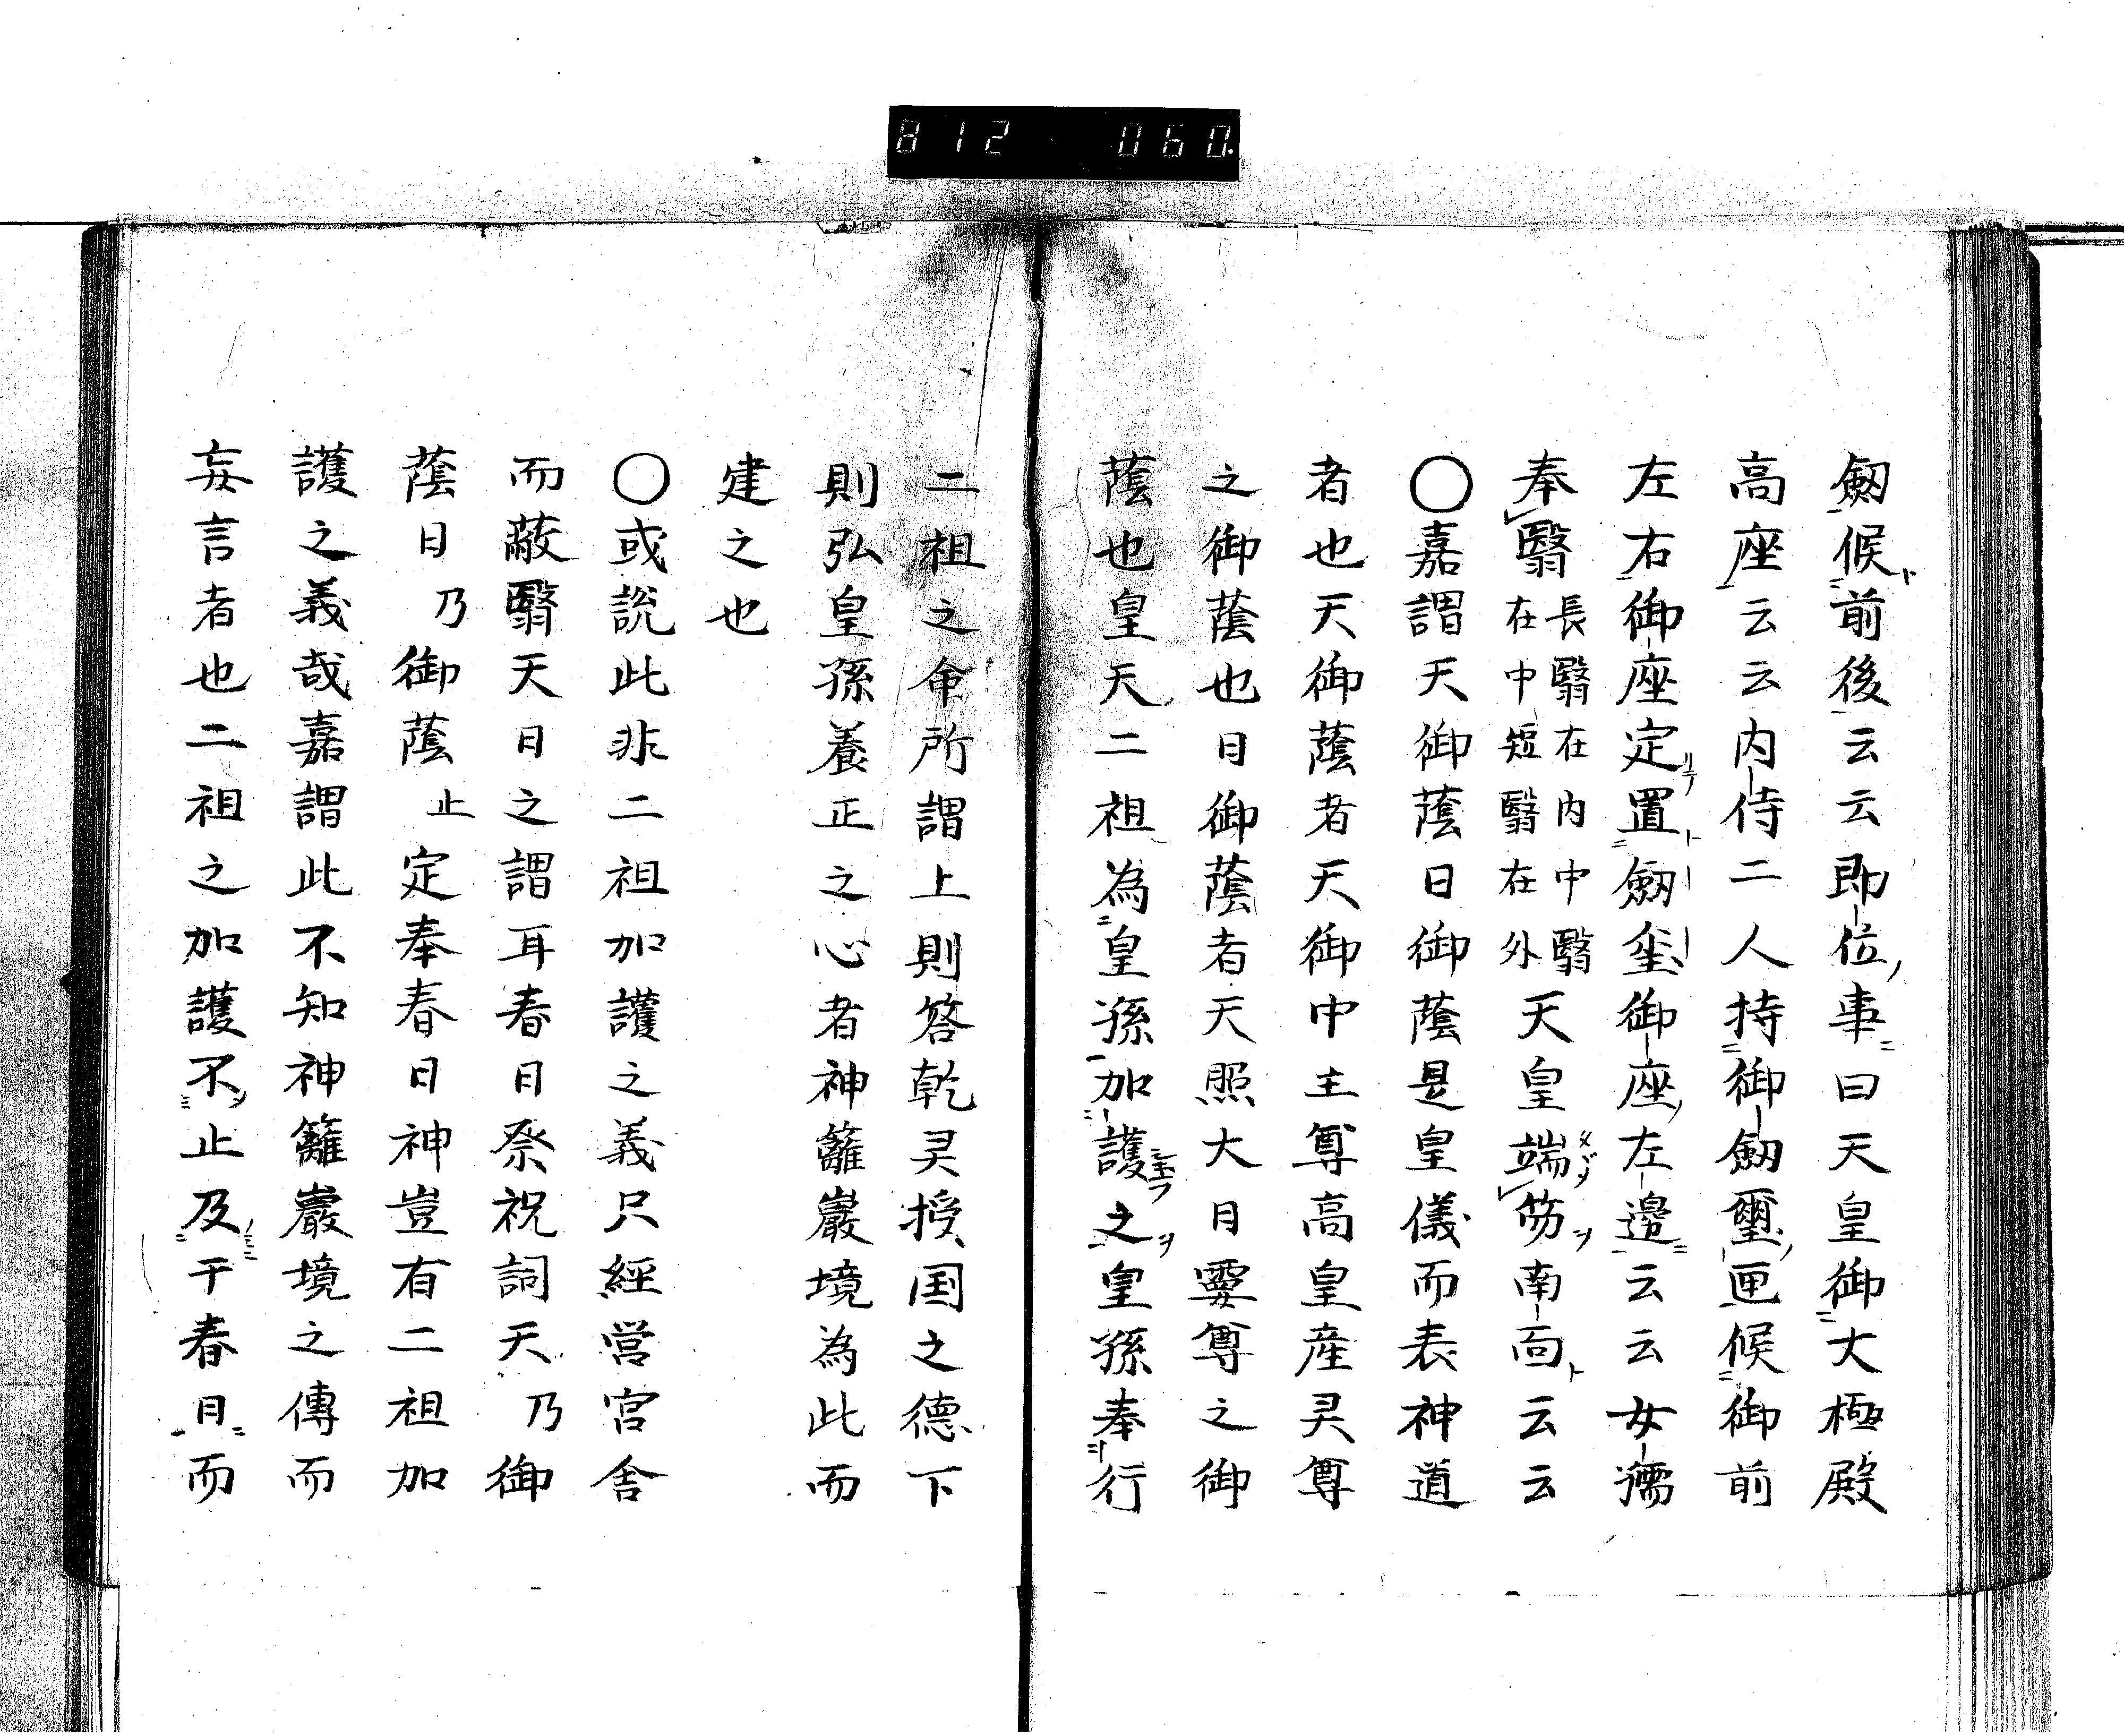 812 060.
劔候前後云云即位事曰天皇御大極殿
高座云云内侍二人持御劔璽匣候御前
左右御座定置劔坙御座左邉云云女孺
奉翳長翳在内中翳在中短翳在外天皇端笏南面云云
〇嘉謂天御蔭日御蔭是皇儀而表神道
者也天御蔭者天御中主尊高皇産灵尊
之御蔭也日御蔭者天照大日孁尊之御
蔭也皇天二祖為皇孫加護之皇孫奉行
二祖之命所謂上則答乾灵授国之德下
則弘皇孫養正之心者神籬巖境為此而
建之也
〇或説此非二祖加護之義只經営宮舎
而蔽翳天日之謂耳春日祭祝詞天乃御
蔭日乃御蔭止定奉春日神豈有二祖加
護之義哉嘉謂此不知神籬巖境之傳而
妄言者也二祖之加護不止及于春日而